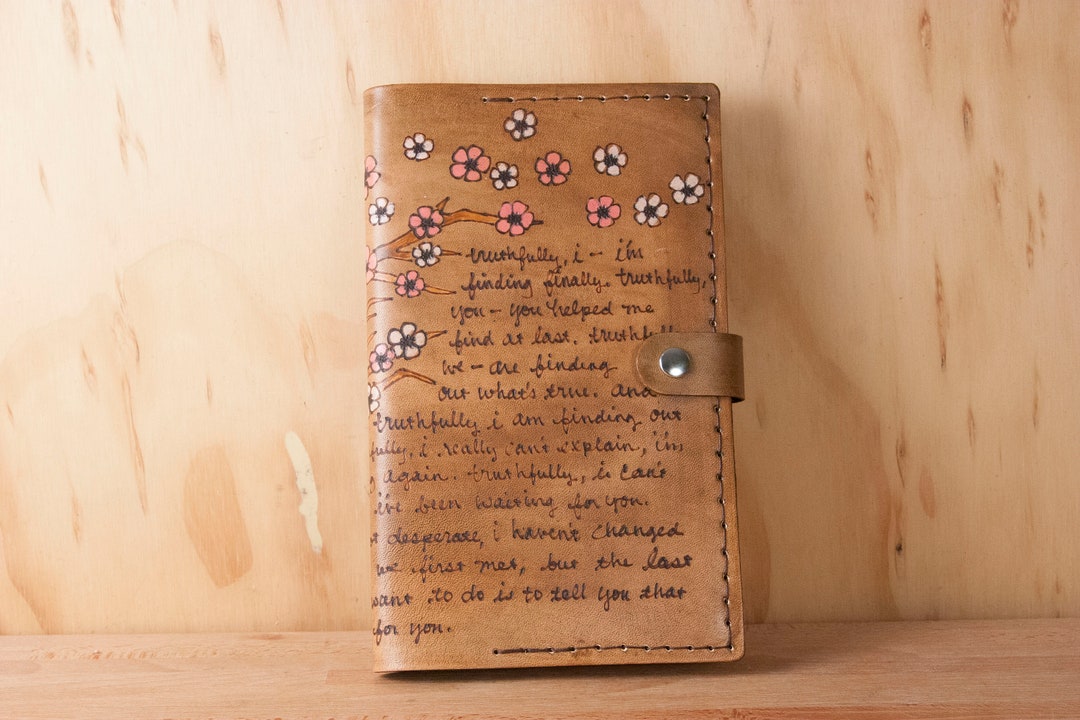 truthfully, i - i'm
finding finally. truthfully,
you - you helped me
find at last. truthfull
we - are finding
out what's true. and
truthfully i am finding out
fully, i really can't explain, i'm
again. truthfully, i can't
i've been waiting for you.
t desperate, i haven't changed
we first met, but the last
want to do is to tell you that
for you.